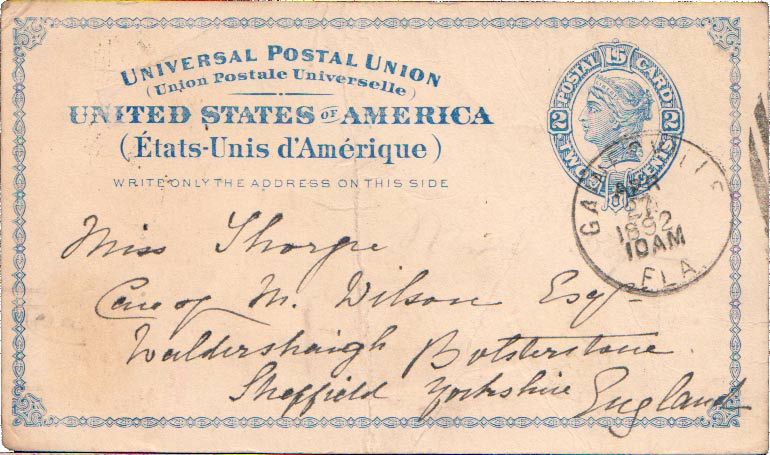 UNIVERSAL POSTAL UNION
(Union Postale Universelle)
UNITED STATES OF AMERICA
(États-Unis d'Amérique)
WRITE ONLY THE ADDRESS ON THIS SIDE
POSTAL 1S CARD
2 TWO CENTS 2
GAINESVILLE
27
1892
10AM
FLA.
Miss Thorpe
Care of M. Wilson Esqre
Waldershaigh Bolsterstone.
Sheffield Yorkshire England